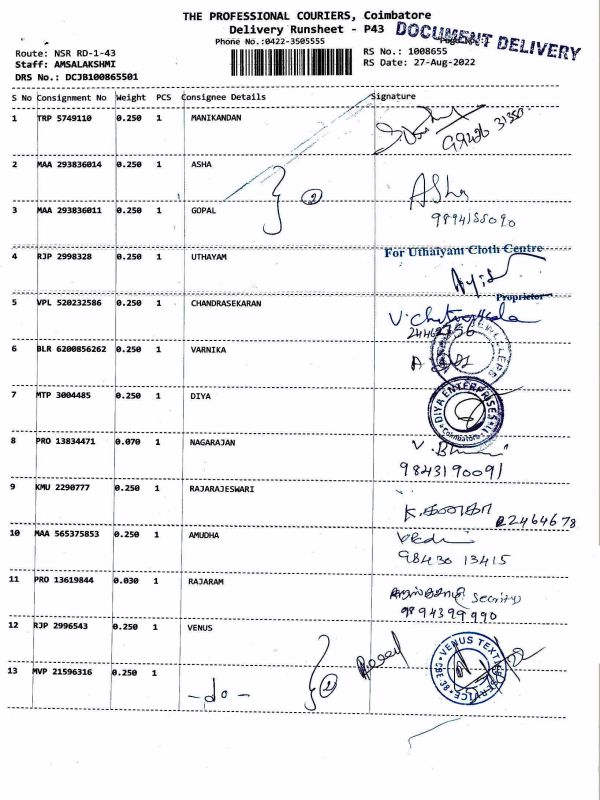 THE PROFESSIONAL COURIERS, Coimbatore
Delivery Runsheet - P43
DOCUMENT DELIVERY
Phone No.:0422-3505555
Route: NSR RD-1-43
RS No.: 1008655
Staff: AMSALAKSHMI
RS Date: 27-Aug-2022
DRS No.: DCJB100865501
S No Consignment No Weight PCS Consignee Details Signature
1 TRP 5749110 0.250 1 MANIKANDAN
2 MAA 293836014 0.250 1 ASHA
2 Asha
3 MAA 293836011 0.250 1 GOPAL
9894155090
4 RJP 2998328 0.250 1 UTHAYAM
For Uthaiyam Cloth Centre
Proprietor
5 VPL 520232586 0.250 1 CHANDRASEKARAN
6 BLR 6200856262 0.250 1 VARNIKA
7 MTP 3004485 0.250 1 DIYA
DIYA ENTERPRISES
Coimbatore
8 PRO 13834471 0.070 1 NAGARAJAN
9843190091
9 KMU 2290777 0.250 1 RAJARAJESWARI
22464678
10 MAA 565375853 0.250 1 AMUDHA
98430 13415
11 PRO 13619844 0.030 1 RAJARAM
Security
9894399990
12 RJP 2996543 0.250 1 VENUS
VENUS TEXT
SERVICE
CBE-38
13 MVP 21596316 0.250 1
-do- 2